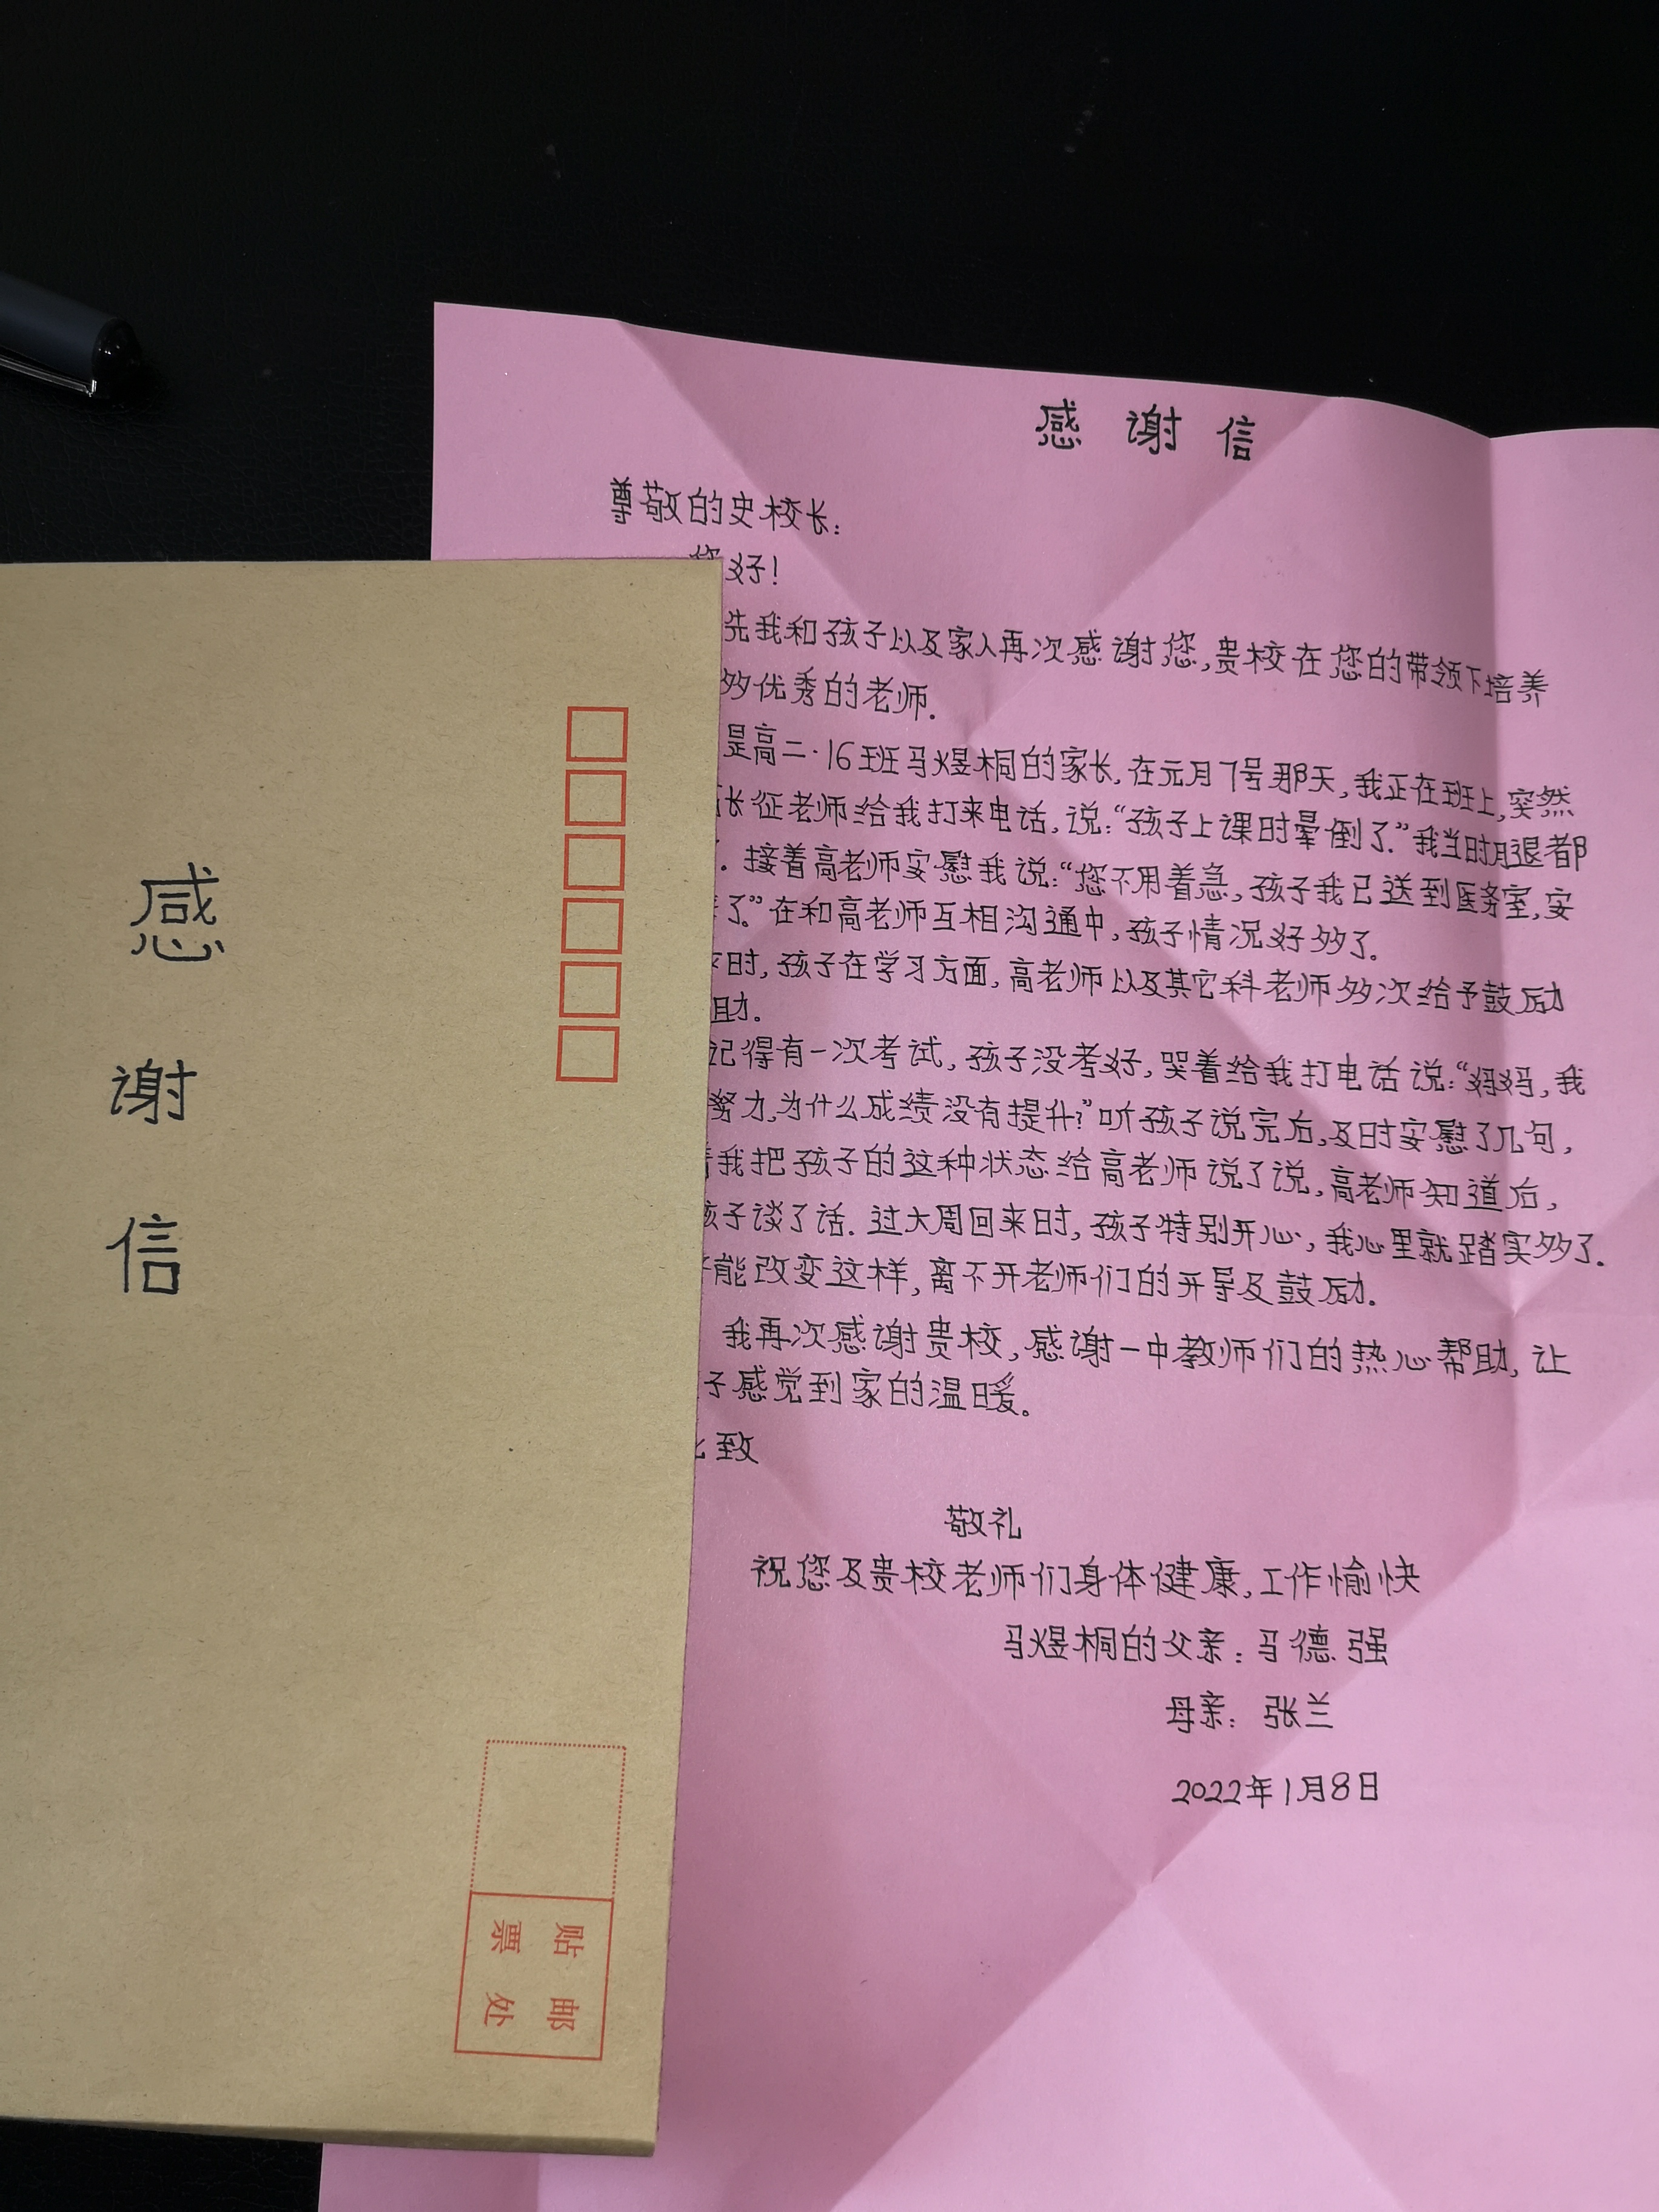 感谢信
贴邮
票处
感谢信
尊敬的史校长:
您好!
先我和孩子以及家人再次感谢您,贵校在您的带领下培养
多优秀的老师.
是高二·16班马煜桐的家长,在元月7号那天,我正在班上,突然
长征老师给我打来电话,说:“孩子上课时晕倒了.”我当时腿都
.接着高老师安慰我说:“您不用着急,孩子我已送到医务室,安
了.”在和高老师互相沟通中,孩子情况好多了.
时,孩子在学习方面,高老师以及其它科老师多次给予鼓励
助.
记得有一次考试,孩子没考好,哭着给我打电话说:“妈妈,我
努力,为什么成绩没有提升?”听孩子说完后,及时安慰了几句,
我把孩子的这种状态给高老师说了说,高老师知道后,
孩子谈了话.过大周回来时,孩子特别开心,我心里就踏实多了.
能改变这样,离不开老师们的开导及鼓励.
我再次感谢贵校,感谢一中教师们的热心帮助,让
子感觉到家的温暖。
致
敬礼
祝您及贵校老师们身体健康,工作愉快
马煜桐的父亲:马德强
母亲:张兰
2022年1月8日